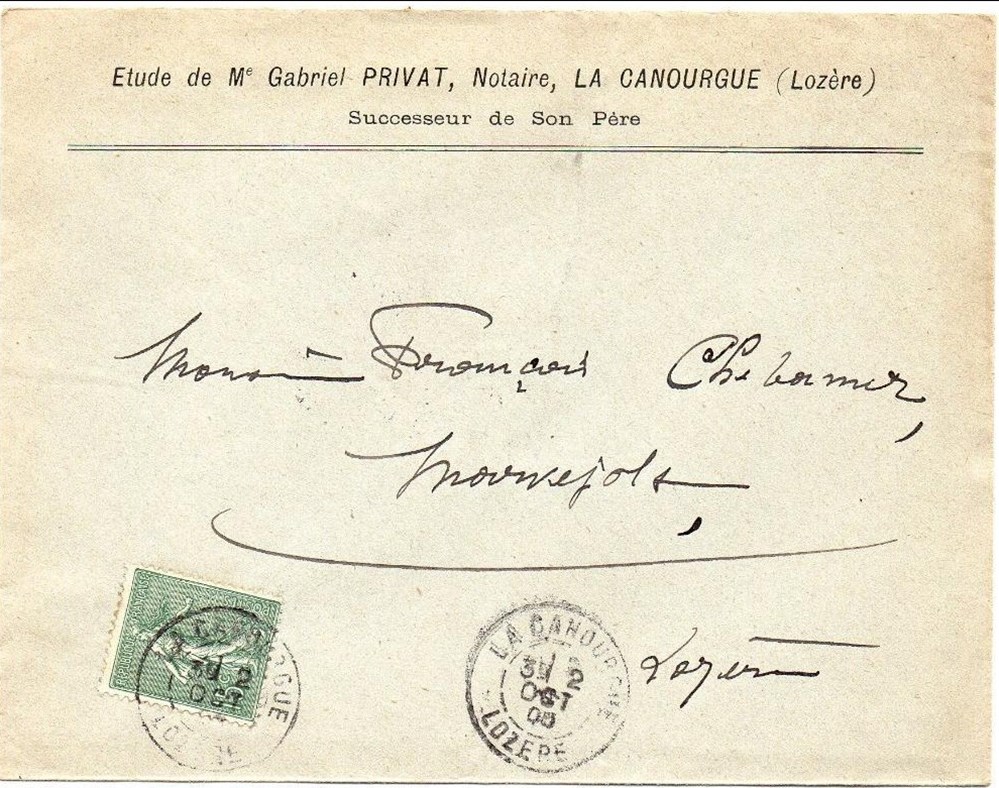 Etude de Me Gabriel PRIVAT, Notaire, LA CANOURGUE (Lozère)
Successeur de Son Père
Monsieur François
Marvejols,
Lozère
LA CANOURGUE
OCT
LOZERE
LA CANOURGUE
OCT
LOZERE